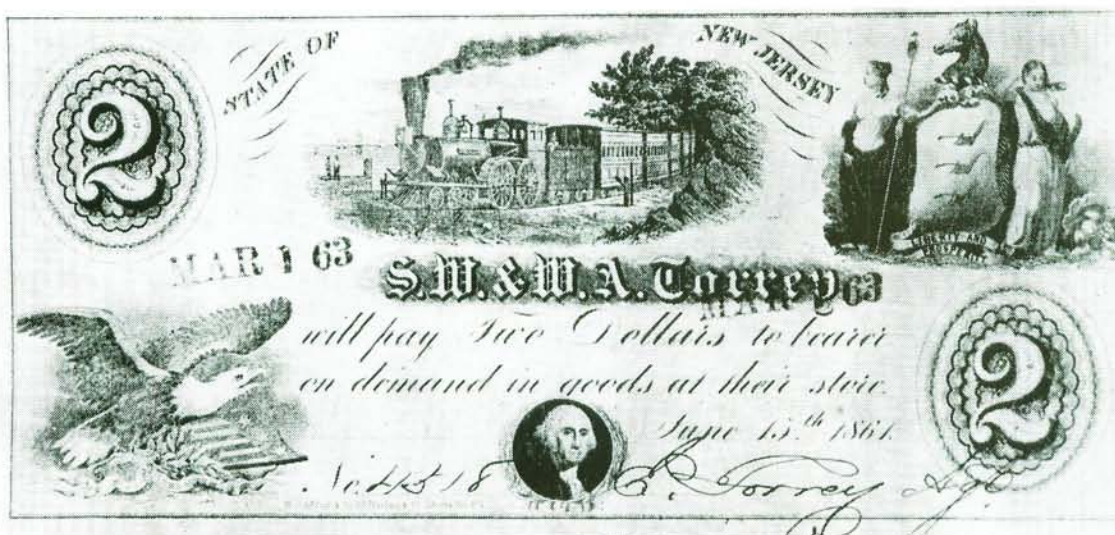 2
STATE OF
NEW JERSEY
LIBERTY AND
MAR 1 63
S.W. & W.A. Torrey
MAR 63
will pay Two Dollars to bearer
on demand in goods at their store.
June 15th 1861.
2
No. 4518
E. Torrey Agt.